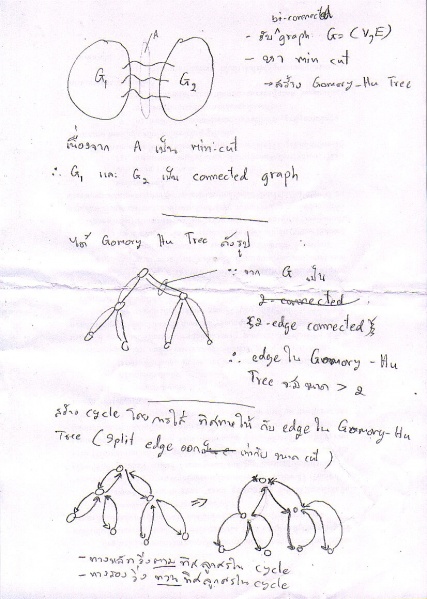 bi-connected
A
- รับ ^ graph G=(V,E)
- หา min cut
→ สร้าง Gomory-Hu Tree
G₁
G₂
เนื่องจาก A เป็น min-cut
∴ G₁ และ G₂ เป็น connected graph
ได้ Gomory Hu Tree ดังรูป
∵ จาก G เป็น
2-connected
{2-edge connected}
∴ edge ใน Gomory-Hu
Tree จะมีขนาด > 2
สร้าง cycle โดยการใส่ ทิศทางให้ กับ edge ใน Gomory-Hu
Tree (split edge ออก เท่ากับ ขนาด cut)
⇒
- ทางหลัก วิ่งตาม ทิศลูกศรใน cycle
- ทางรอง วิ่ง ทวน ทิศลูกศรใน cycle